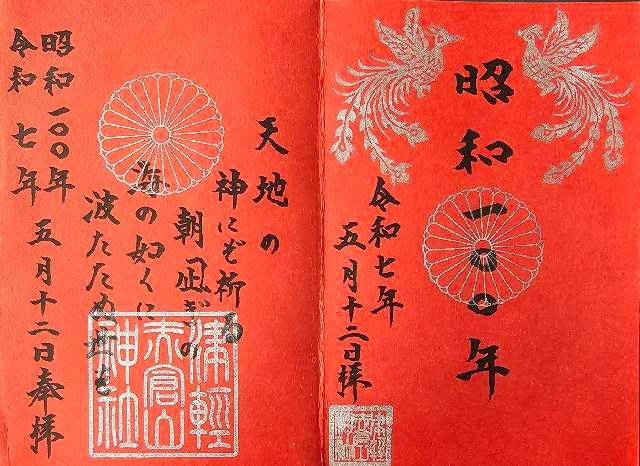 昭和一〇〇年
令和七年
五月十二日拝
天地の
神にぞ祈る
朝凪ぎの
海の如くに
波たたぬ世を
昭和一〇〇年
令和七年 五月十二日奉拝
津軽
赤倉山
神社